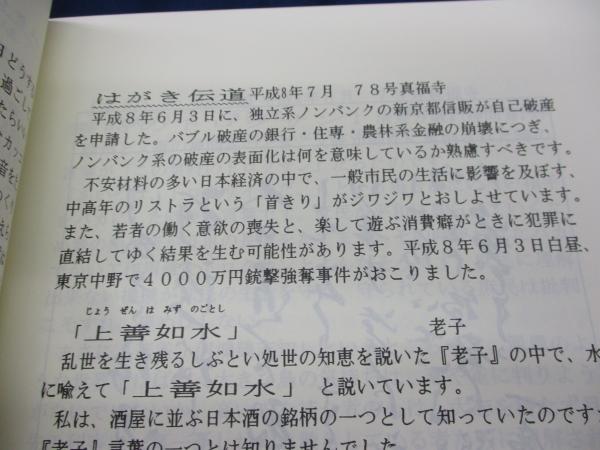 はがき伝道 平成8年7月 78号真福寺
平成8年6月3日に、独立系ノンバンクの新京都信販が自己破産
を申請した。バブル破産の銀行・住専・農林系金融の崩壊につぎ、
ノンバンク系の破産の表面化は何を意味しているか熟慮すべきです。
不安材料の多い日本経済の中で、一般市民の生活に影響を及ぼす、
中高年のリストラという「首きり」がジワジワとおしよせています。
また、若者の働く意欲の喪失と、楽して遊ぶ消費癖がときに犯罪に
直結してゆく結果を生む可能性があります。平成8年6月3日白昼、
東京中野で4000万円銃撃強奪事件がおこりました。
じょう ぜん は みず のごとし
「上善如水」 老子
乱世を生き残るしぶとい処世の知恵を説いた『老子』の中で、水
に喩えて「上善如水」と説いています。
私は、酒屋に並ぶ日本酒の銘柄の一つとして知っていたのですが
『老子』言葉の一つとは知りませんでした